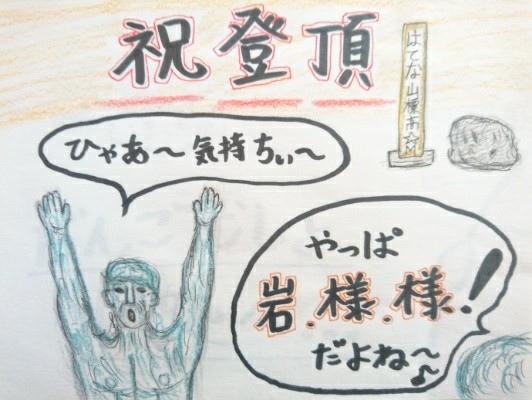 祝登頂
はてな山標高
ひゃあ〜気持ちぃ〜
やっぱ
岩.様.様.!
だよね〜♪